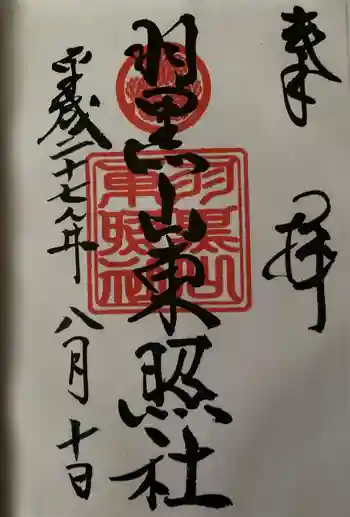 奉拝
羽黒山東照社
羽黒山東照社
平成二十七年八月十日